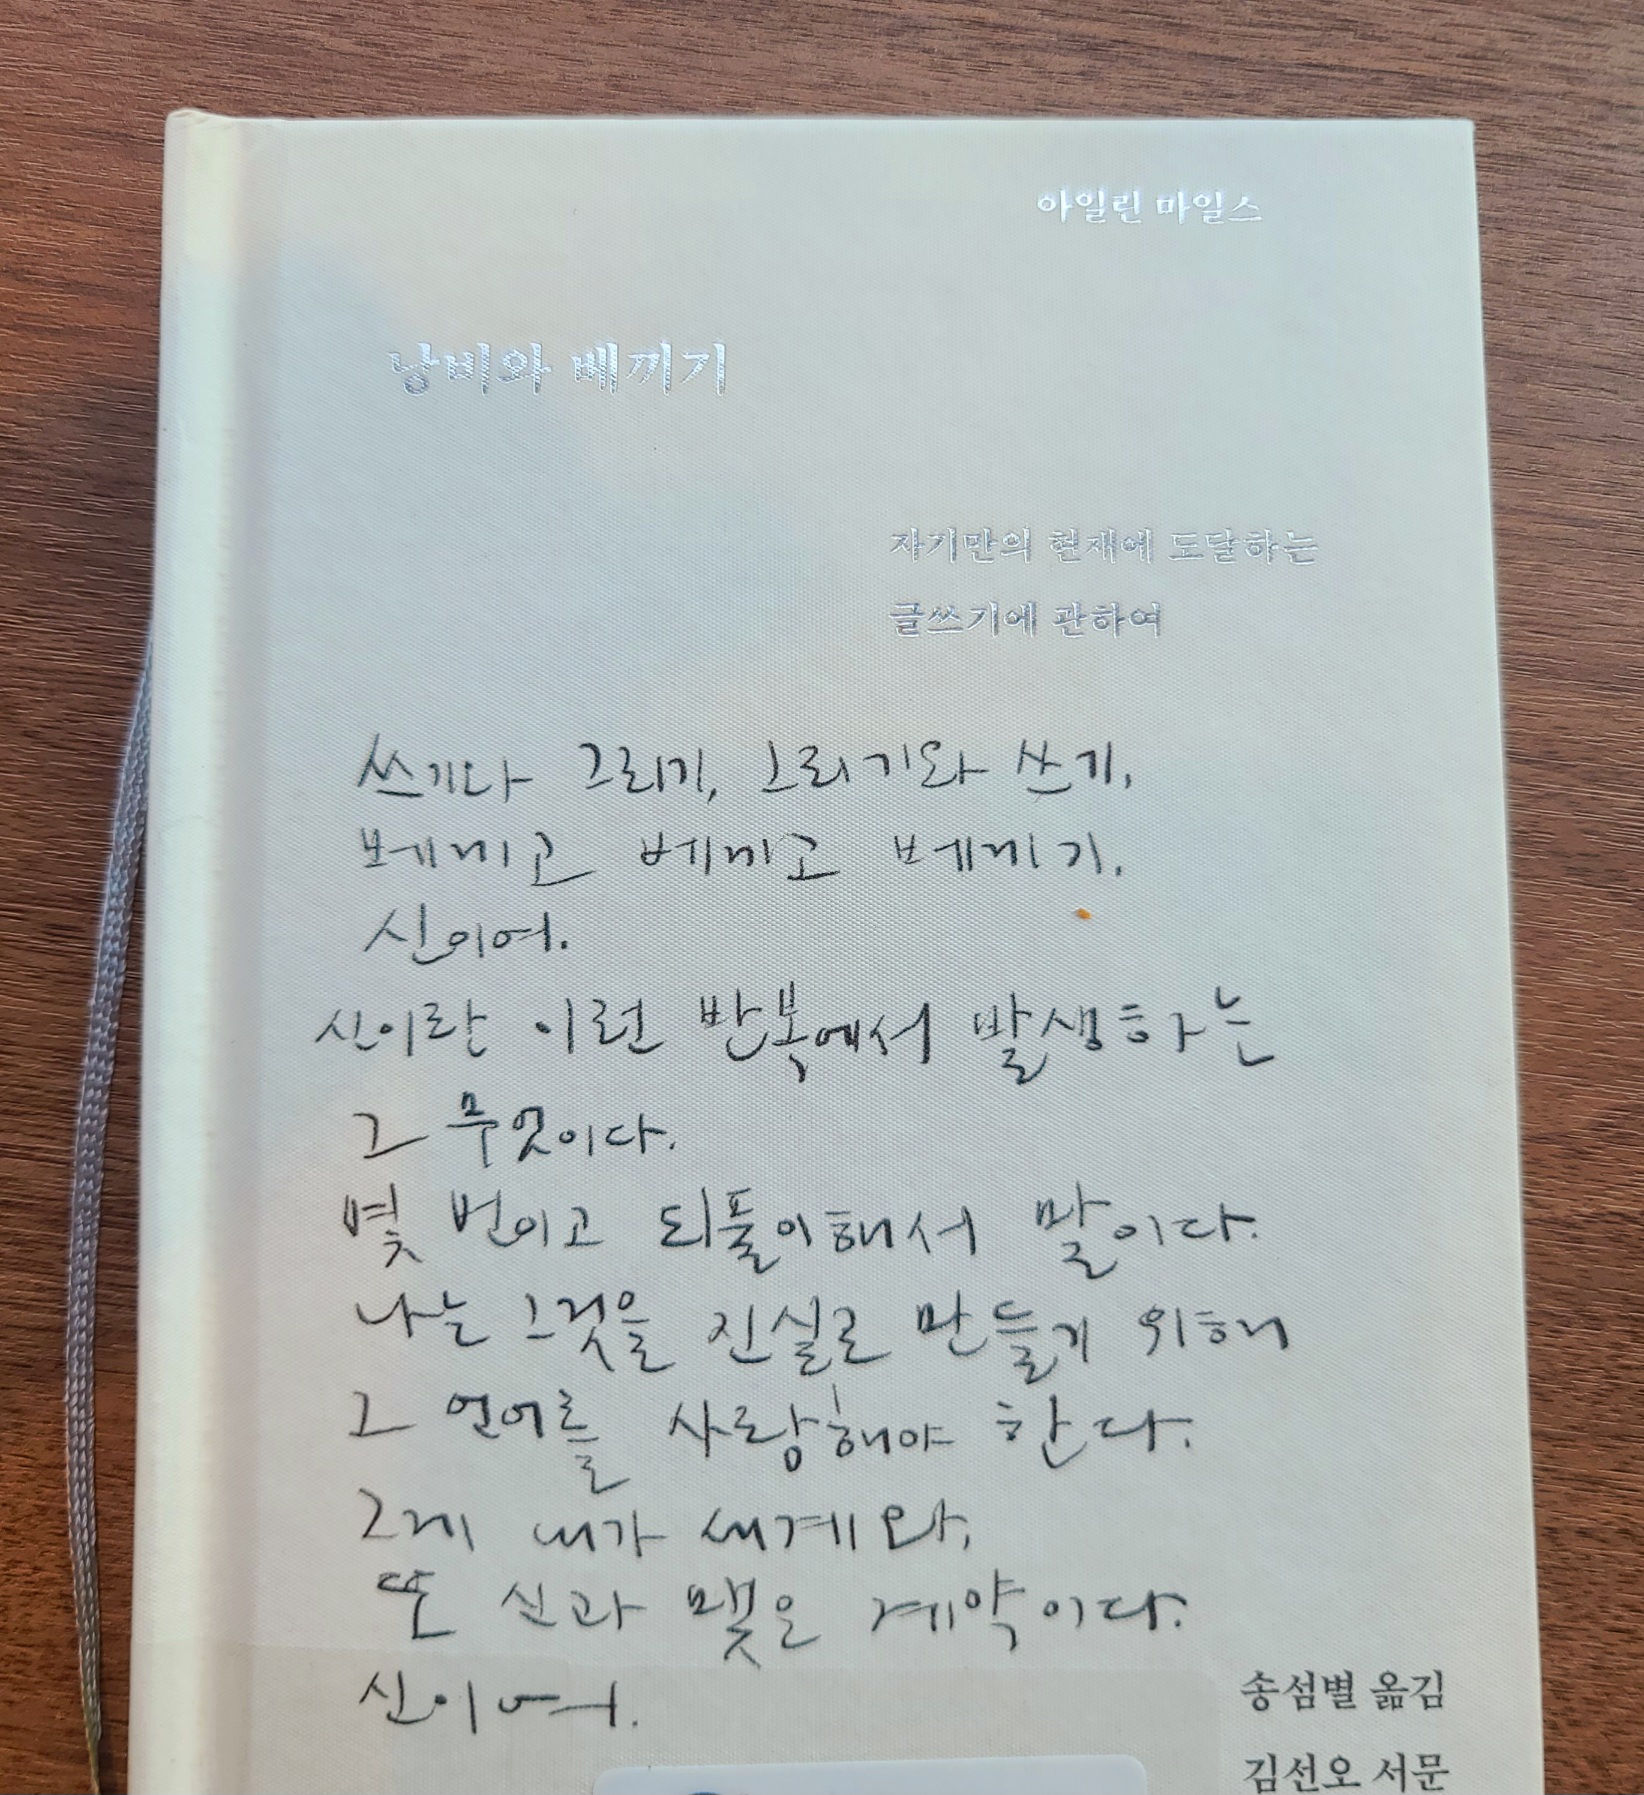 아일린 마일스
낭비와 베끼기
자기만의 현재에 도달하는
글쓰기에 관하여
쓰기와 그리기, 그리기와 쓰기,
베끼고 베끼고 베끼기.
신이여.
신이란 이런 반복에서 발생하는
그 무엇이다.
몇 번이고 되풀이해서 말이다.
나는 그것을 진실로 만들기 위해
그 언어를 사랑해야 한다.
그게 내가 세계와,
또 신과 맺은 계약이다.
신이여.
송섬별 옮김
김선오 서문